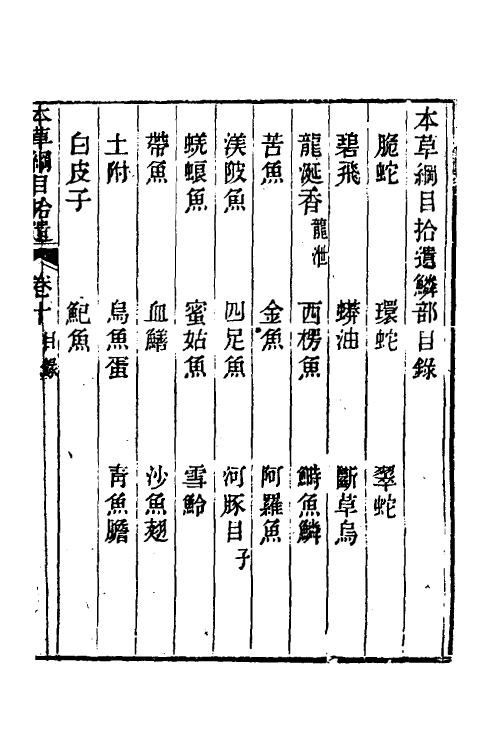 本草綱目拾遺鱗部目錄
脆蛇 環蛇 翠蛇
碧飛 蟒油 斷草烏
龍涎香龍泄 西楞魚 鰣魚鱗
苦魚 金魚 阿羅魚
渼陂魚 四足魚 河豚目子
蟯蜋魚 蜜姑魚 雪鮯
帶魚 血鱔 沙魚翅
土附 烏魚蛋 青魚膽
白皮子 鮑魚
本草綱目拾遺 卷十 目錄